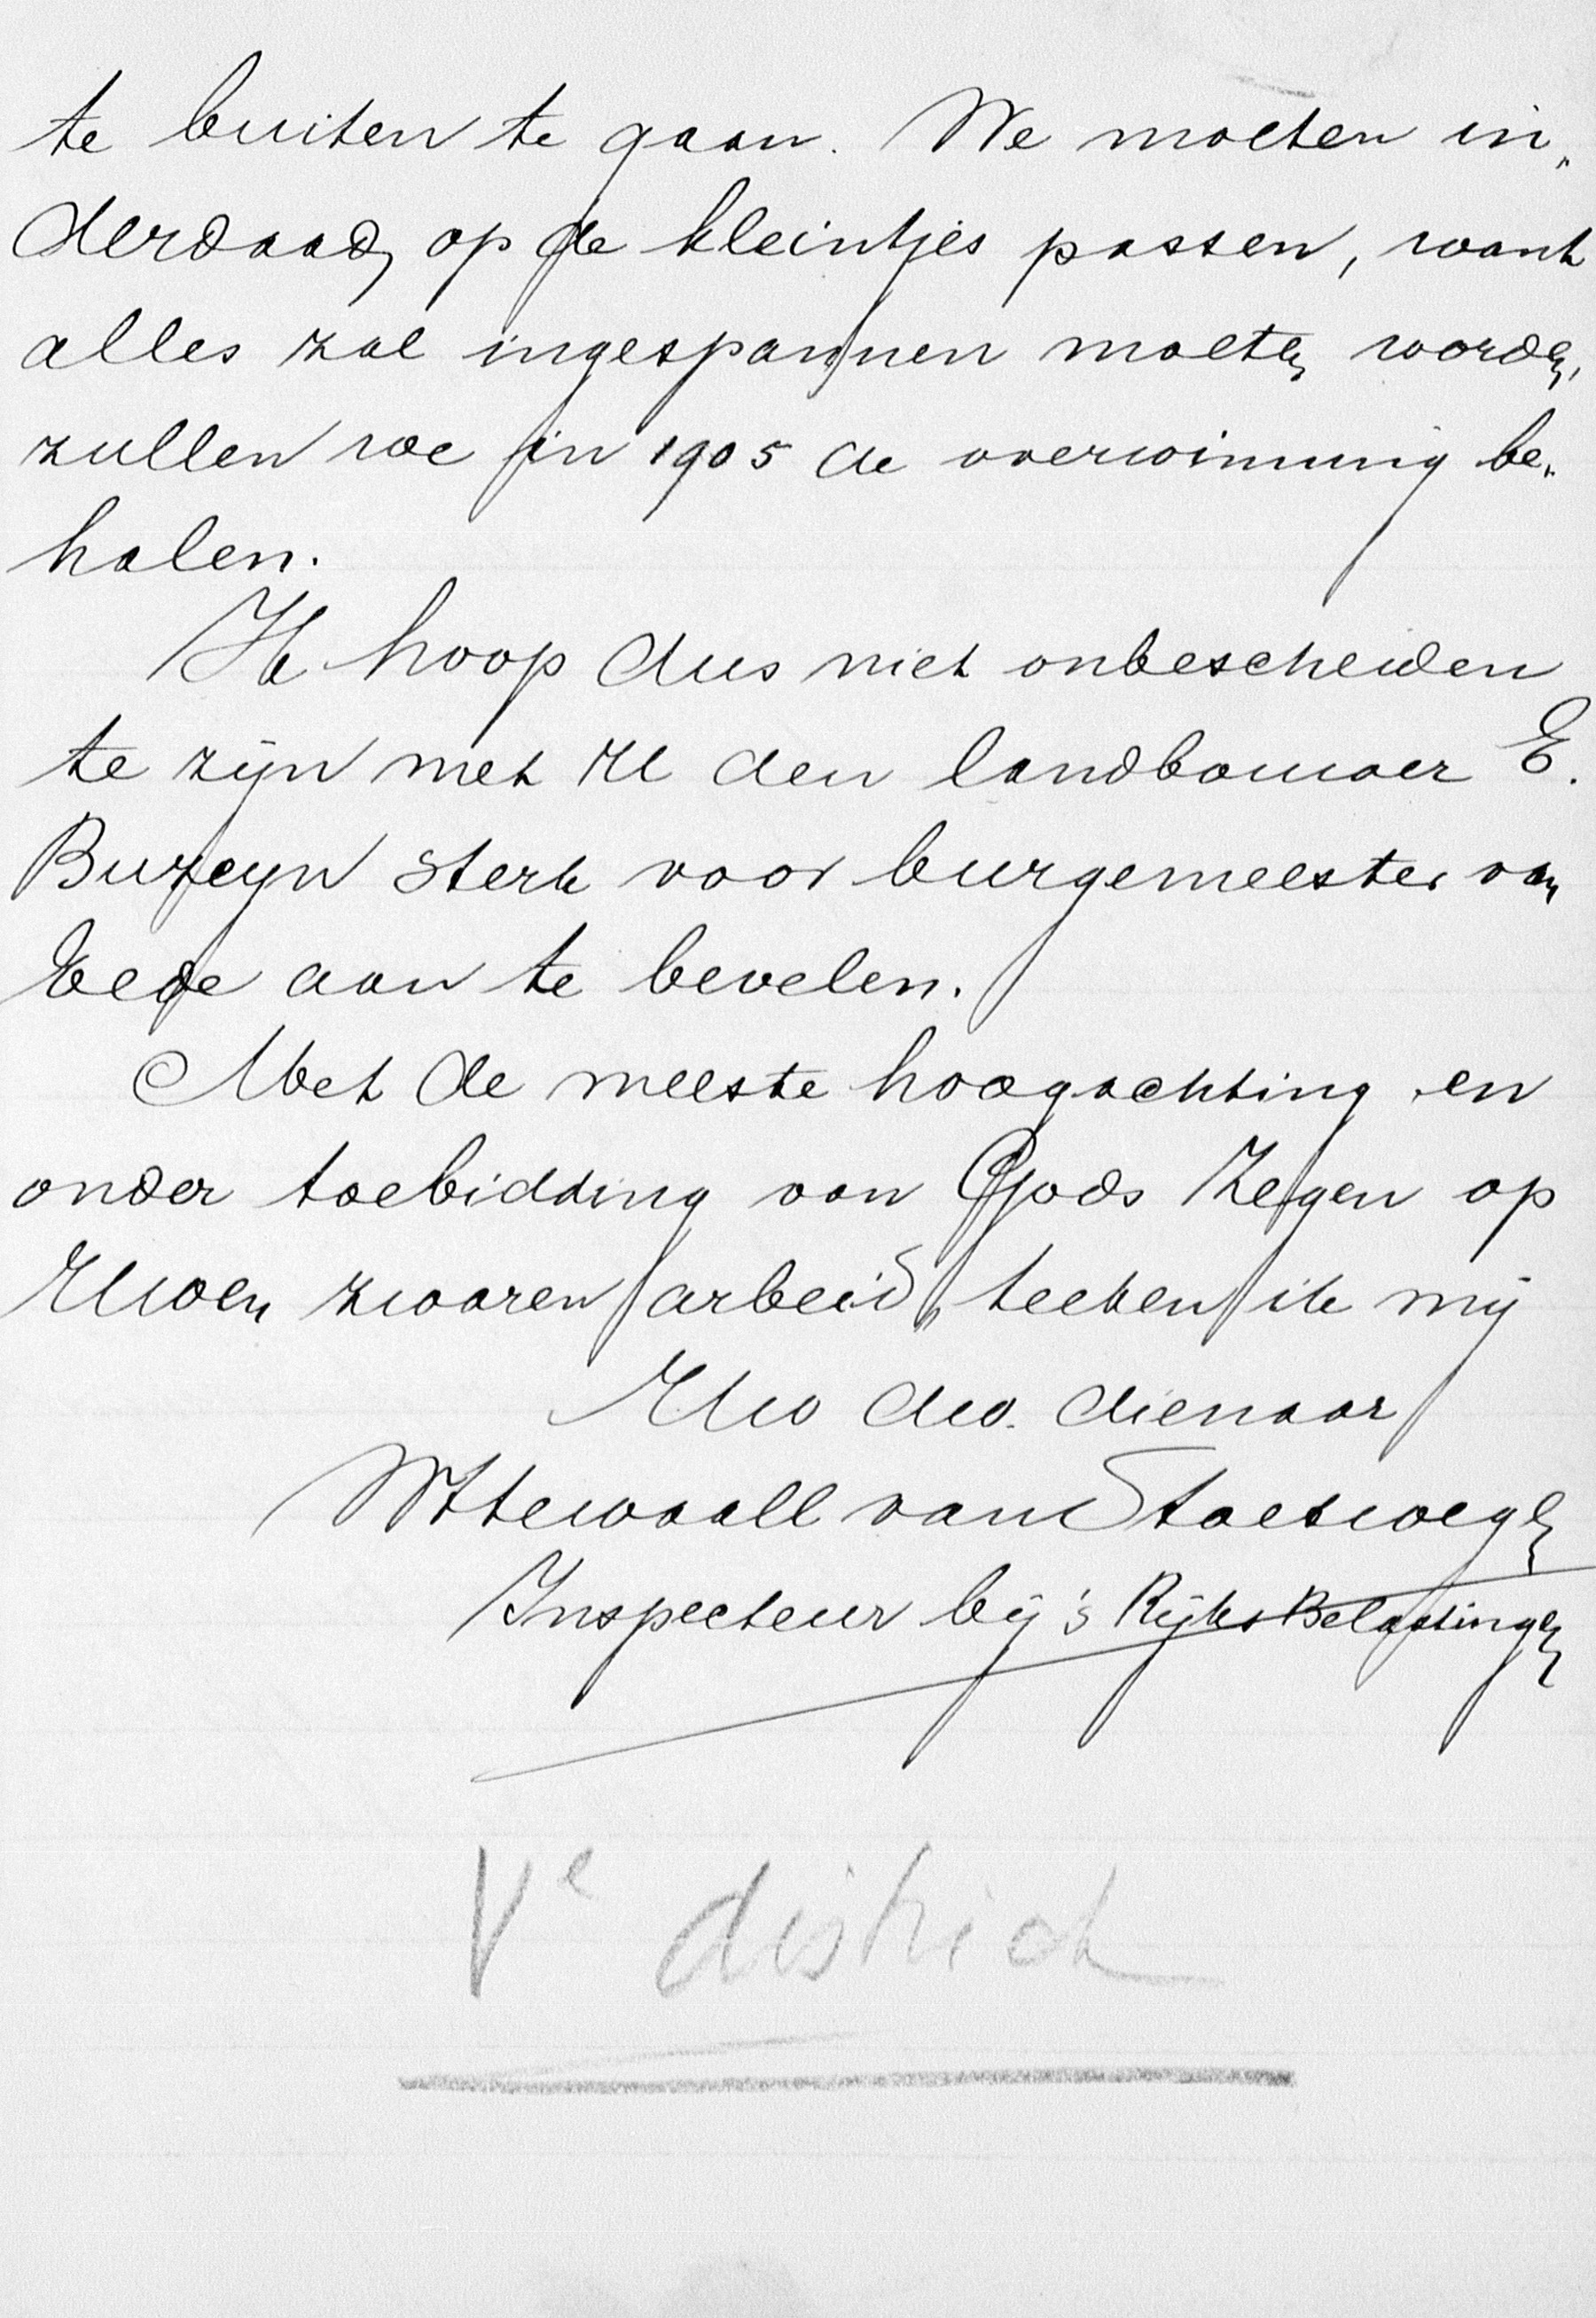 te buiten te gaan. We moeten in„
derdaad op de kleintjes passen, want
alles zal ingespannen moeten worden,
zullen we in 1905 de overwinning be„
halen.
Ik hoop dus niet onbescheiden
te zijn met U den landbouwer E.
Buzeyn sterk voor burgemeester van
Eede aan te bevelen.
Met de meeste hoogachting en
onder toebidding van Gods Zegen op
Uwen zwaren arbeid, teeken ik mij
Uw dw. dienaar
Wttewaall van Stoetwegen
Inspecteur bij 's Rijks Belastingen
Ve district